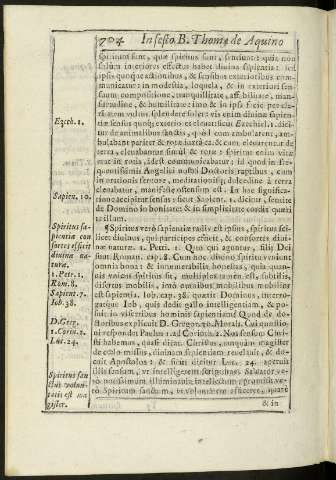 704
In festo B. Thomę de Aquino
spiritum sunt, quæ spiritus sunt, sentiunt: quia non
solùm interiores effectus habet diuina sapientia: sed
ipsis quoque actionibus, & sensibus exterioribus com-
municatur: in modestia, loquela, & in exteriorum sen-
suum compositione, tranquillitate, affabilitate, man-
suetudine, & humilitate: imo & in ipsa facie per
vultus splendor solet: vis enim diuinæ sapien-
tiæ sensus quoq; exterio es eleuat sicut Ezechiel. 1.
tur de animalibus sanctis, quòd cum ambularent, am-
bulabant pariter & rotæ iuxta ea: & cum eleuarentur de
terra, eleuabantur simul & rotæ: spiritus enim vitæ
erat in rotis, idest communicabatur: id quod in fre-
quentissimis Angelici nostri Doctoris raptibus, cum
in orationis feruore, meditationisq; defendente à terra
eleuabatur, manifestè ostensum est. In hac significa-
tione accipitur sensus: sicut Sapient. 1. dicitur, sentite
de Domino in bonitate: & in simplicitate cordis quæri
te illum.
¶ Spiritus verò sapientiæ talis est ipsius, consors
diuinus, qui participes efficit, & consortes diui-
næ naturæ. 1. Petri. 1. Quo qui aguntur, filij Dei
sunt Roman. cap. 8. Cum hoc diuino spiritu veniunt
omnia bona: & innumerabilis honestas, quia quam-
uis vnicus spiritus sit, multiplex tamen est, subtilis,
disertus mobilis, imò omnibus mobilibus mobilior
est sapientia. Iob. cap. 38. quærit Dominus, interro-
gatque Iob, quis dedit gallo intelligentiam, & po-
suit in visceribus hominis sapientiam? Quod de do-
ctoribus explicuit D. Gregor. 30. Moral. Cui quæstio-
ni respondet Paulus 1. ad Corinth. 2. Nos sensum Christi
habemus, quasi dicat. Christus, quoniam magister
de cœlo missus, diuinam sapientiam reuelauit, & do-
cuit Apostolos: & sicut dicitur Luc. 24. aperuit
illis sensum, vt intelligerent scripturas. Saluator ve-
rò nouissimum illuminatis intellectum aperuit is ve-
rò Spiritum sanctum, vt voluntatem efficeret, quare
& in
Ezech. 1.
Sapien. 10.
Spiritus sa-
pientiæ con-
sortes efficit
diuinæ na-
turæ.
1. Petr. 1.
Rom. 8.
Sapient. 7.
Iob. 38.
D. Greg.
1. Corin. 2.
Luc. 24.
Spiritus san
ctus volun-
tatis est ma
gister.